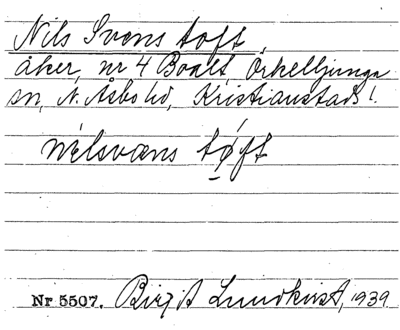 Nils Svens toft
åker, nr 4 Boalt, Örkelljunga
sn, N. Åsbo hd, Kristianstads l.
nilsvæns tøft
Nr 5507. Birgit Lundkvist, 1939